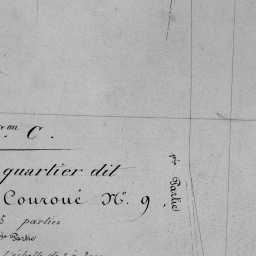 on C.
quartier dit
Couroué N.° 9
5 parties
1re Partie
pie Partie